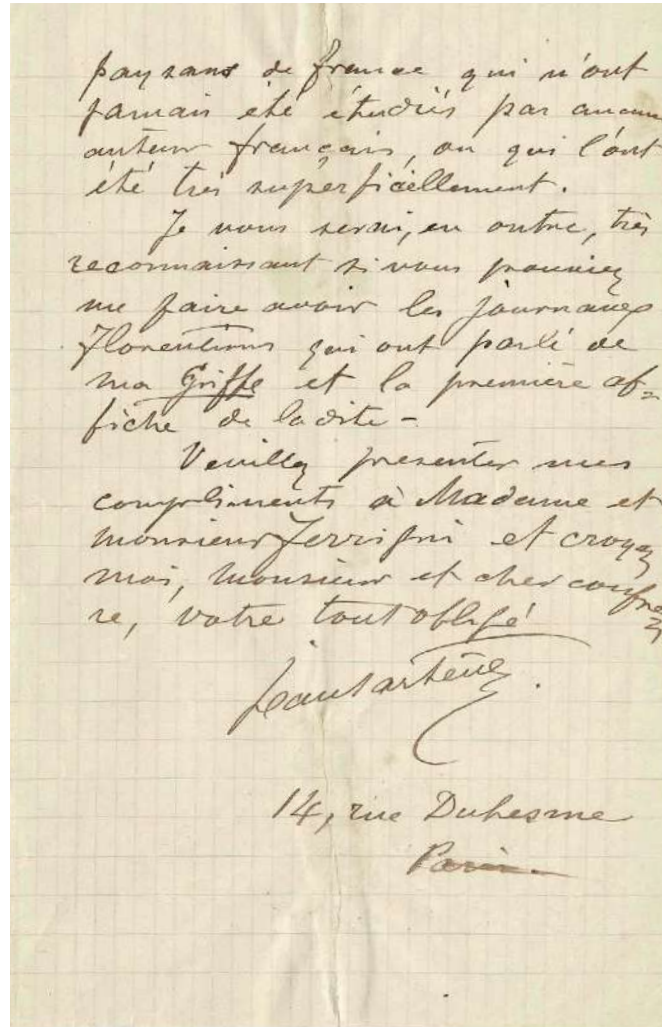 paysans de france qui n'ont
jamais été étudiés par aucun
auteur français, ou qui l'ont
été très superficiellement.
Je vous serai, en outre, très
reconnaissant si vous pouviez
me faire avoir les journaux
Florentins qui ont parlé de
ma Griffe et la première af=
fiche de ladite -
Veuillez presenter mes
compliments à Madame et
monsieur Ferrigni et croyez
moi, monsieur et cher confrè
re, votre tout obligé
Jean Sartène
14, rue Duhesme
Paris